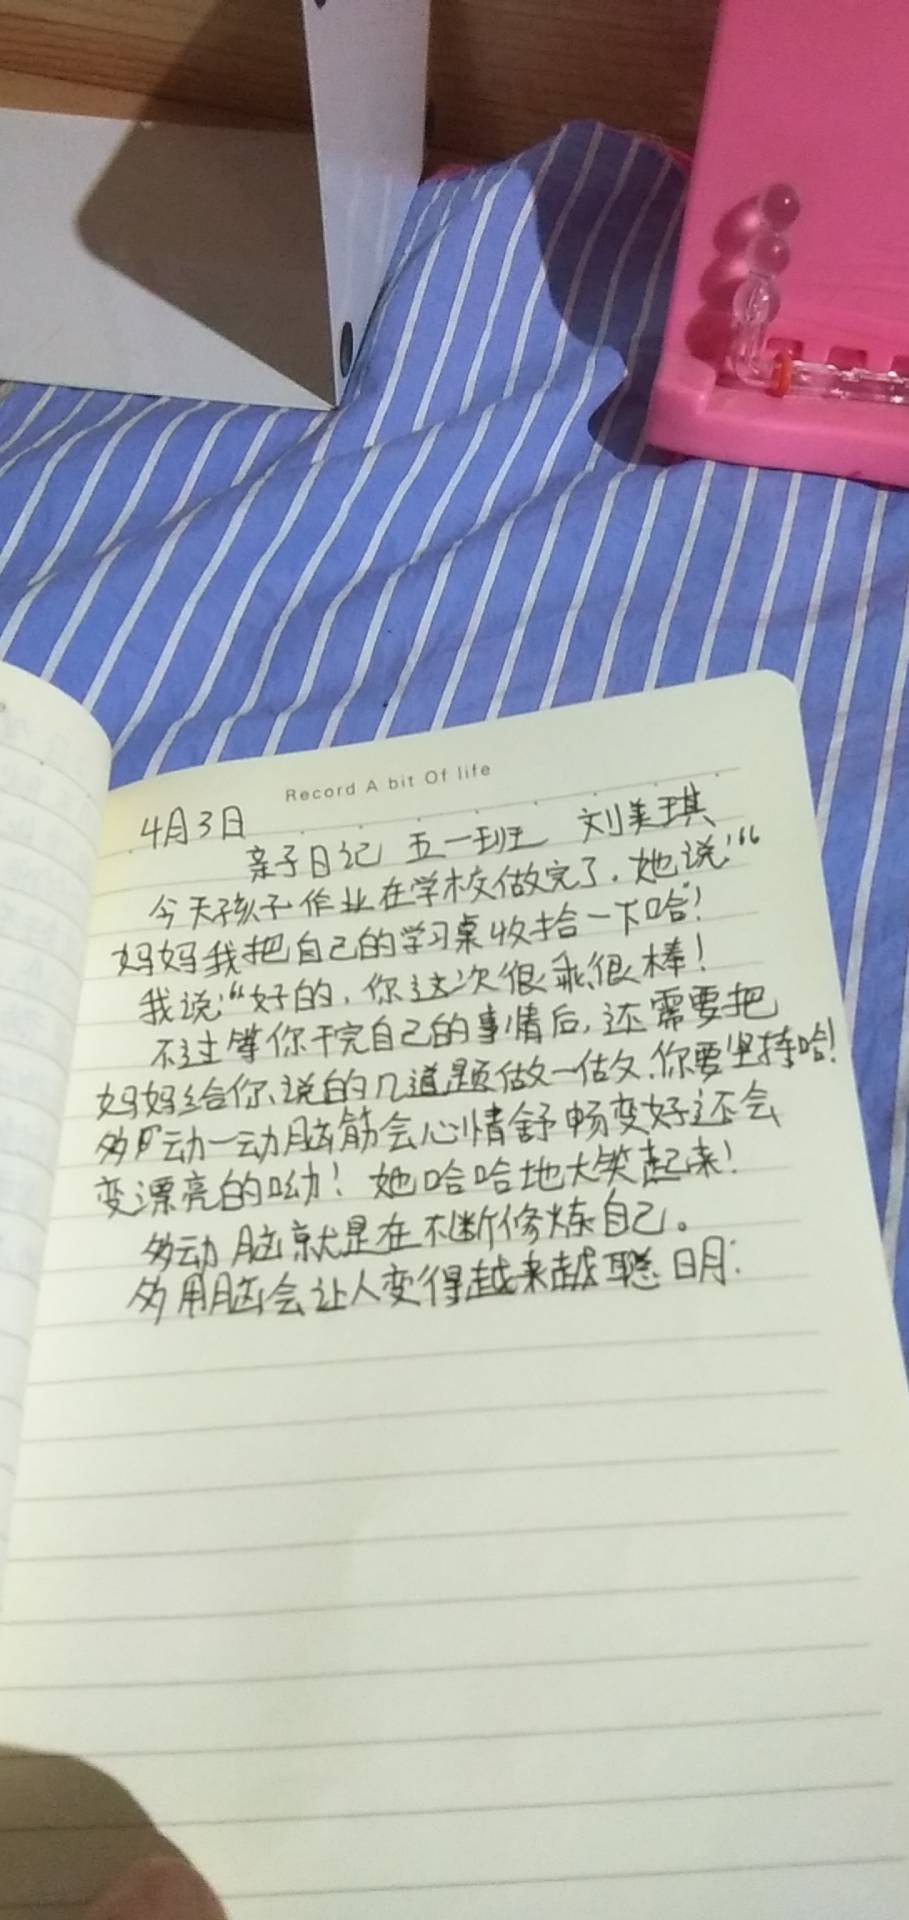 Record A bit Of life
4月3日
亲子日记 五一班 刘美琪
今天孩子作业在学校做完了.她说:“
妈妈我把自己的学习桌收拾一下哈!
我说:“好的,你这次很乖很棒!
不过等你干完自己的事情后,还需要把
妈妈给你说的几道题做一做.你要坚持哈!
多动一动脑筋会心情舒畅变好还会
变漂亮的呦! 她哈哈地大笑起来!
多动脑就是在不断修炼自己。
多用脑会让人变得越来越聪明.